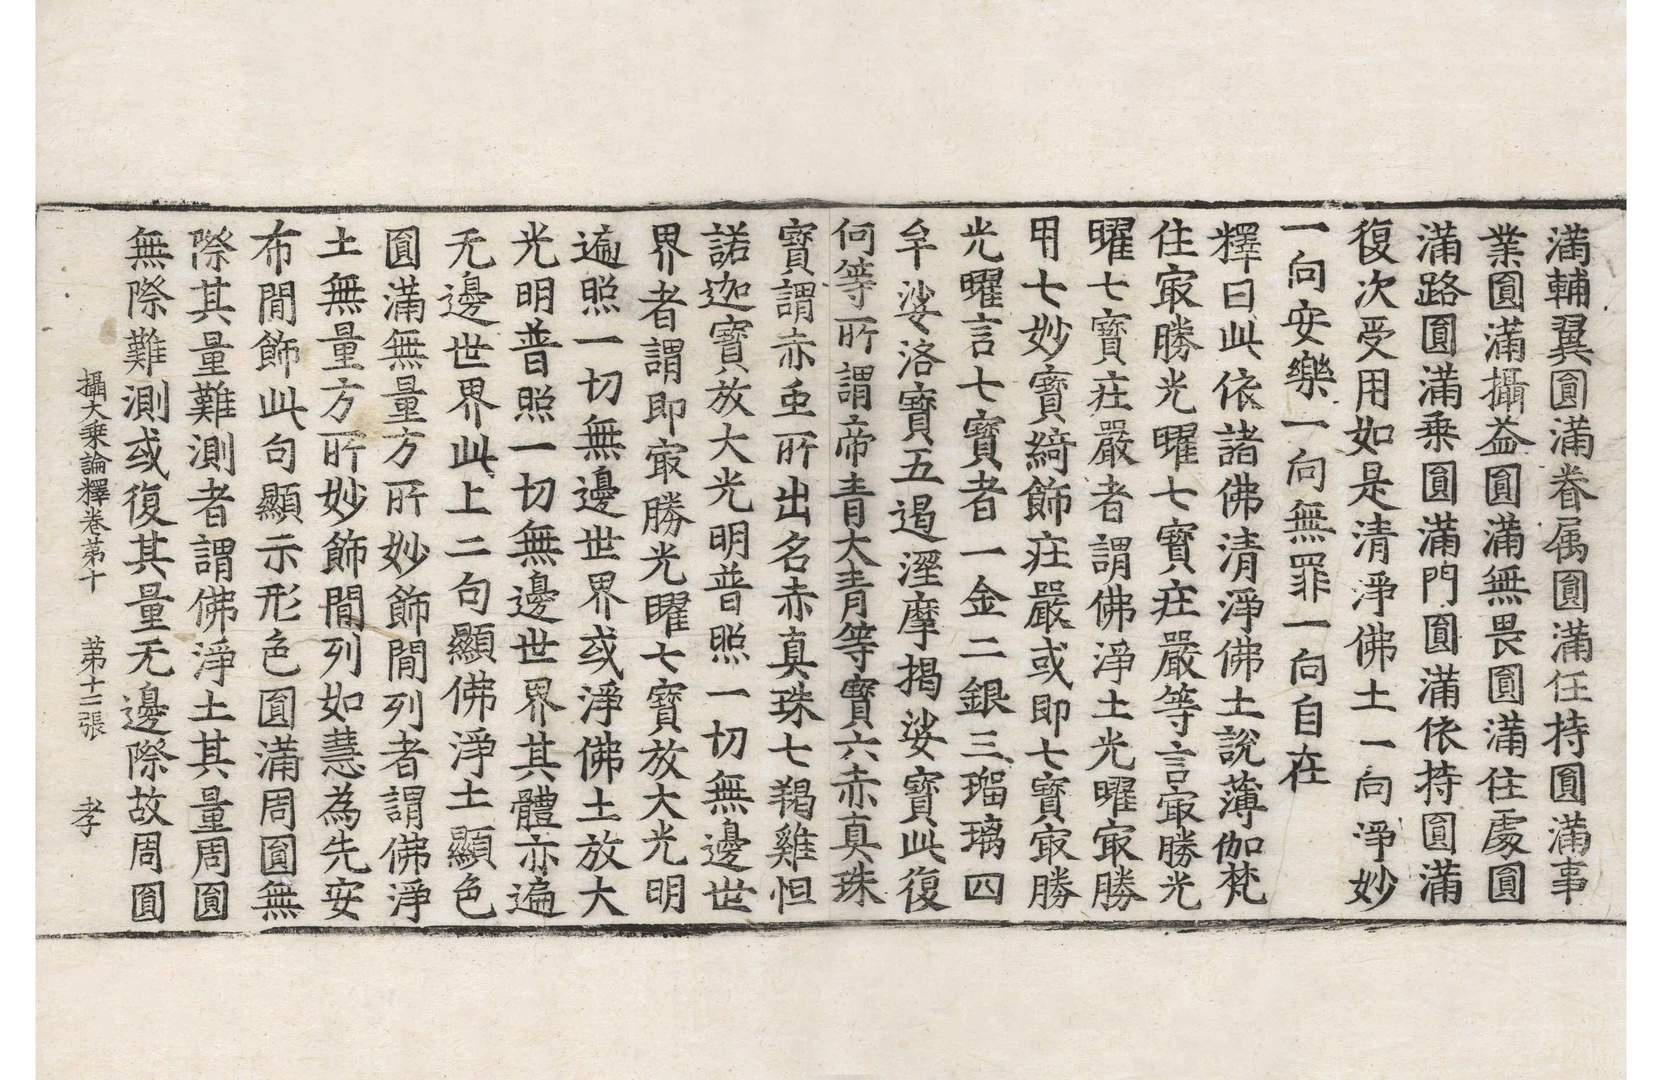 滿輔翼圓滿眷属圓滿任持圓滿事
業圓滿攝益圓滿無畏圓滿住處圓
滿路圓滿乗圓滿門圓滿依持圓滿
復次受用如是清淨佛土一向淨妙
一向安樂一向無罪一向自在
釋曰此依諸佛清淨佛土說薄伽梵
住㝡勝光曜七寶㽵嚴等言㝡勝光
曜七寶㽵嚴者謂佛淨土光曜㝡勝
用七妙寶綺飾㽵嚴或即七寶㝡勝
光曜言七寶者一金二銀三瑠璃四
牟娑洛寶五遏溼摩揭娑寶此復
何等所謂帝青大青等寶六赤真珠
寶謂赤䖝所出名赤真珠七羯雞怛
諾迦寶放大光明普照一切無邊世
界者謂即㝡勝光曜七寶放大光明
遍照一切無邊世界或淨佛土放大
光明普照一切無邊世界其體亦遍
无邊世界此上二句顯佛淨土顯色
圓滿無量方所妙飾閒列者謂佛淨
土無量方所妙飾閒列如慧為先安
布閒飾此句顯示形色圓滿周圓無
際其量難測者謂佛淨土其量周圓
無際難測或復其量无邊際故周圓
攝大乗論釋卷第十　第十二張　孝